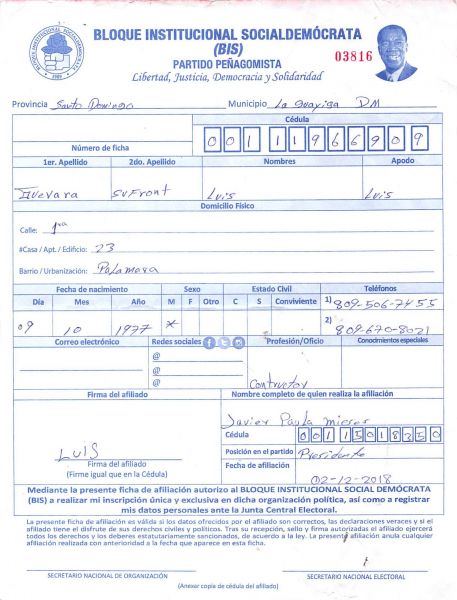 BLOQUE INSTITUCIONAL SOCIALDEMÓCRATA
(BIS)
PARTIDO PEÑAGOMISTA
Libertad, Justicia, Democracia y Solidaridad
03816
Provincia Santo Domingo Municipio La Guayiga DM
Cédula
Número de ficha 001 1196690 9
1er. Apellido 2do. Apellido Nombres Apodo
Guevara Sufront Luis Luis
Domicilio Físico
Calle: 1ra
#Casa / Apt. / Edificio: 23
Barrio / Urbanización: Palamara
Fecha de nacimiento Sexo Estado Civil Teléfonos
Día Mes Año M F Otro C S Conviviente 1) 809-506-7455
09 10 1977 x 2) 809-670-8021
Correo electrónico Redes sociales Profesión/Oficio Conocimientos especiales
@
@
@ Contructor
Firma del afiliado Nombre completo de quien realiza la afiliación
Javier Paula
Cédula
001 1501835 0
LUIS Posición en el partido Presidente
Firma del afiliado Fecha de afiliación
(Firme igual que en la Cédula) 02-12-2018
Mediante la presente ficha de afiliación autorizo al BLOQUE INSTITUCIONAL SOCIAL DEMÓCRATA
(BIS) a realizar mi inscripción única y exclusiva en dicha organización política, así como a registrar
mis datos personales ante la Junta Central Electoral.
La presente ficha de afiliación es válida si los datos ofrecidos por el afiliado son correctos, las declaraciones veraces y si el
afiliado tiene el disfrute de sus derechos civiles y políticos. Tras su recepción, sello y firma autorizadas el afiliado ejercerá
todos los derechos y los deberes estatutariamente sancionados, de acuerdo a la ley. La presente afiliación anula cualquier
afiliación realizada con anterioridad a la fecha que aparece en esta ficha.
SECRETARIO NACIONAL DE ORGANIZACIÓN SECRETARIO NACIONAL ELECTORAL
(Anexar copia de cédula del afiliado)